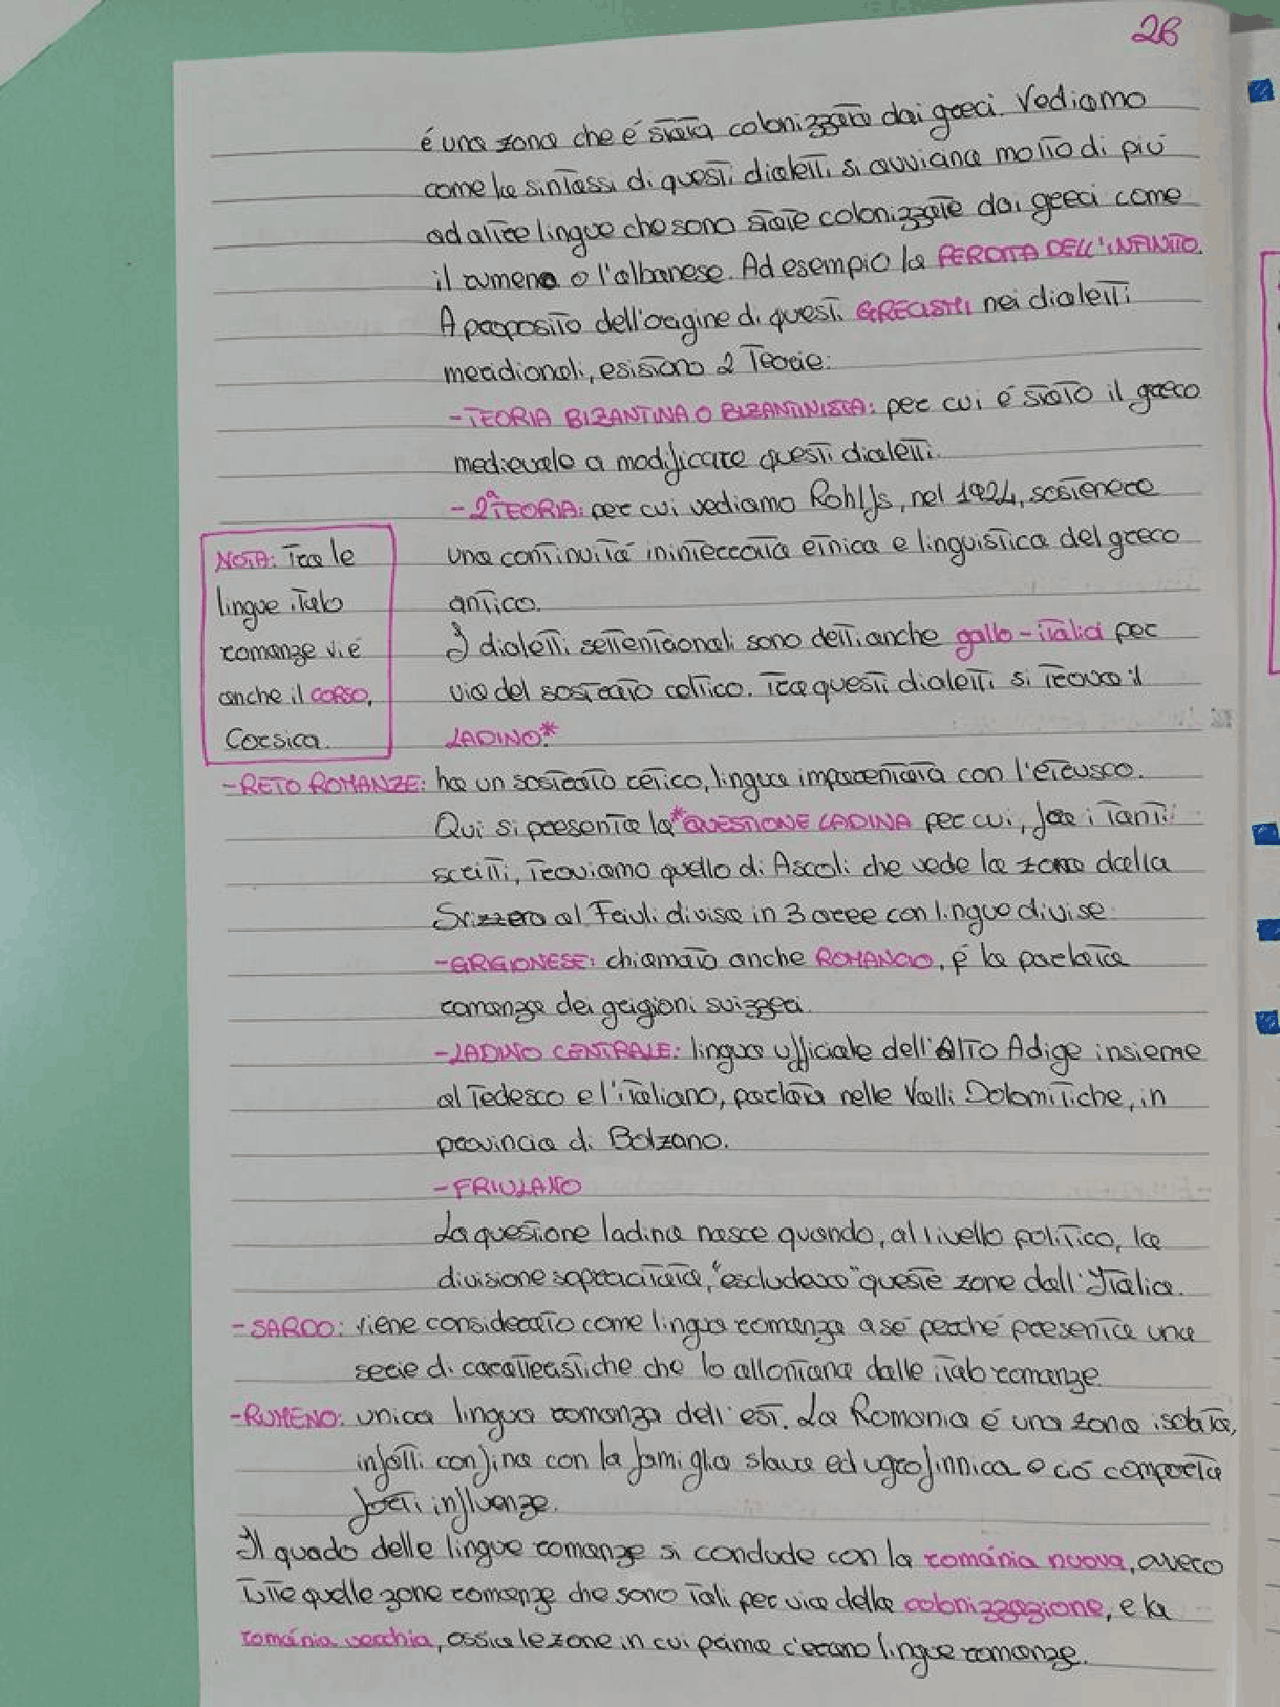 26
é una zona che é stata colonizzata dai greci. Vediamo
come la sintassi di questi dialetti si avviana molto di piú
ad altre lingue che sono state colonizzate dai greci come
il rumeno o l'albanese. Ad esempio la PERDITA DELL'INFINITO.
A proposito dell'origine di questi GRECISMI nei dialetti
meridionali, esistono 2 teorie:
-TEORIA BIZANTINA O BIZANTINISTA: per cui é stato il greco
medievale a modificare questi dialetti.
-2ª TEORIA: per cui vediamo Rohlfs, nel 1924, sostenere
una continuitá ininterrotta etnica e linguistica del greco
antico.
I dialetti settentrionali sono detti anche gallo-italici per
via del sostrato celtico. Tra questi dialetti si trova il
LADINO*
NOTA: Tra le
lingue italo
romanze v.é
anche il CORSO,
Corsica.
-RETO ROMANZE: ha un sostrato retico, lingua imparentata con l'etrusco.
Qui si presenta la *QUESTIONE LADINA per cui, fra i tanti
scritti, troviamo quello di Ascoli che vede la zona dalla
Svizzera al Friuli divisa in 3 aree con lingue divise:
-GRIGIONESE: chiamato anche ROMANCIO, é la parlata
romanza dei grigioni svizzeri.
-LADINO CENTRALE: lingua ufficiale dell'Alto Adige insieme
al tedesco e l'italiano, parlata nelle Valli Dolomitiche, in
provincia di Bolzano.
-FRIULANO
La questione ladina nasce quando, al livello politico, la
divisione sopracitata, "escludeva" queste zone dall'Italia.
-SARDO: viene considerato come lingua romanza a sé perché presenta una
serie di caratteristiche che lo allontana dalle italo romanze.
-RUMENO: unica lingua romanza dell'est. La Romania é una zona isolata,
infatti confina con la famiglia slava ed ugrofinnica e ció comporta
forti influenze.
Il quadro delle lingue romanze si conclude con la románia nuova, ovvero
tutte quelle zone romanze che sono tali per via della colonizzazione, e la
románia vecchia, ossia le zone in cui prima c'erano lingue romanze.